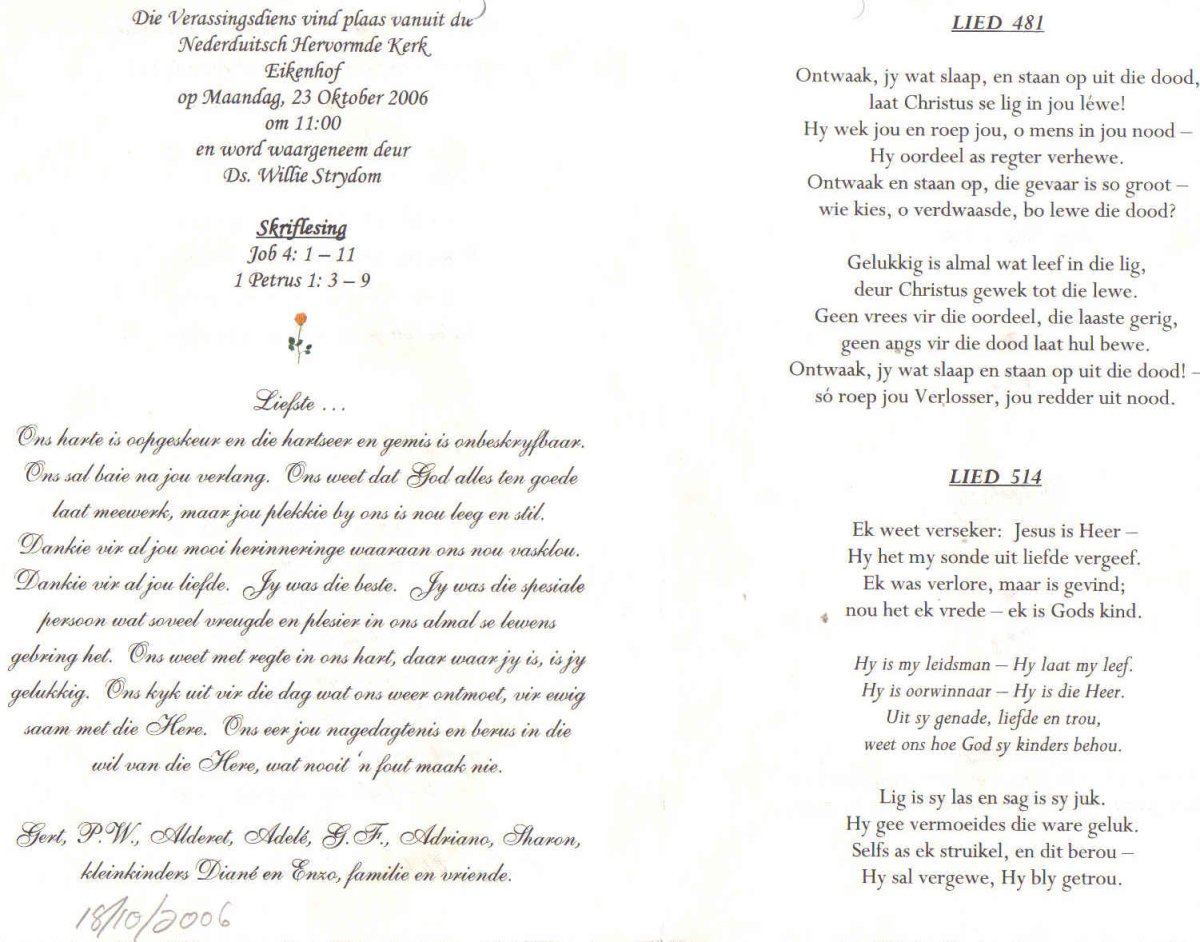 Die Verassingsdiens vind plaas vanuit die
Nederduitsch Hervormde Kerk
Eikenhof
op Maandag, 23 Oktober 2006
om 11:00
en word waargeneem deur
Ds. Willie Strydom
Skriflesing
Job 4: 1 – 11
1 Petrus 1: 3 – 9
Liefste ...
Ons harte is oopgeskeur en die hartseer en gemis is onbeskryfbaar.
Ons sal baie na jou verlang. Ons weet dat God alles ten goede
laat meewerk, maar jou plekkie by ons is nou leeg en stil.
Dankie vir al jou mooi herinneringe waaraan ons nou vasklou.
Dankie vir al jou liefde. Jy was die beste. Jy was die spesiale
persoon wat soveel vreugde en plesier in ons almal se lewens
gebring het. Ons weet met regte in ons hart, daar waar jy is, is jy
gelukkig. Ons kyk uit vir die dag wat ons weer ontmoet, vir ewig
saam met die Here. Ons eer jou nagedagtenis en berus in die
wil van die Here, wat nooit 'n fout maak nie.
Gert, P.W., Alderet, Adelé, G.F., Adriano, Sharon,
kleinkinders Diané en Enzo, familie en vriende.
18/10/2006
LIED 481
Ontwaak, jy wat slaap, en staan op uit die dood,
laat Christus se lig in jou léwe!
Hy wek jou en roep jou, o mens in jou nood –
Hy oordeel as regter verhewe.
Ontwaak en staan op, die gevaar is so groot –
wie kies, o verdwaasde, bo lewe die dood?
Gelukkig is almal wat leef in die lig,
deur Christus gewek tot die lewe.
Geen vrees vir die oordeel, die laaste gerig,
geen angs vir die dood laat hul bewe.
Ontwaak, jy wat slaap en staan op uit die dood! –
só roep jou Verlosser, jou redder uit nood.
LIED 514
Ek weet verseker: Jesus is Heer –
Hy het my sonde uit liefde vergeef.
Ek was verlore, maar is gevind;
nou het ek vrede – ek is Gods kind.
Hy is my leidsman – Hy laat my leef.
Hy is oorwinnaar – Hy is die Heer.
Uit sy genade, liefde en trou,
weet ons hoe God sy kinders behou.
Lig is sy las en sag is sy juk.
Hy gee vermoeides die ware geluk.
Selfs as ek struikel, en dit berou –
Hy sal vergewe, Hy bly getrou.